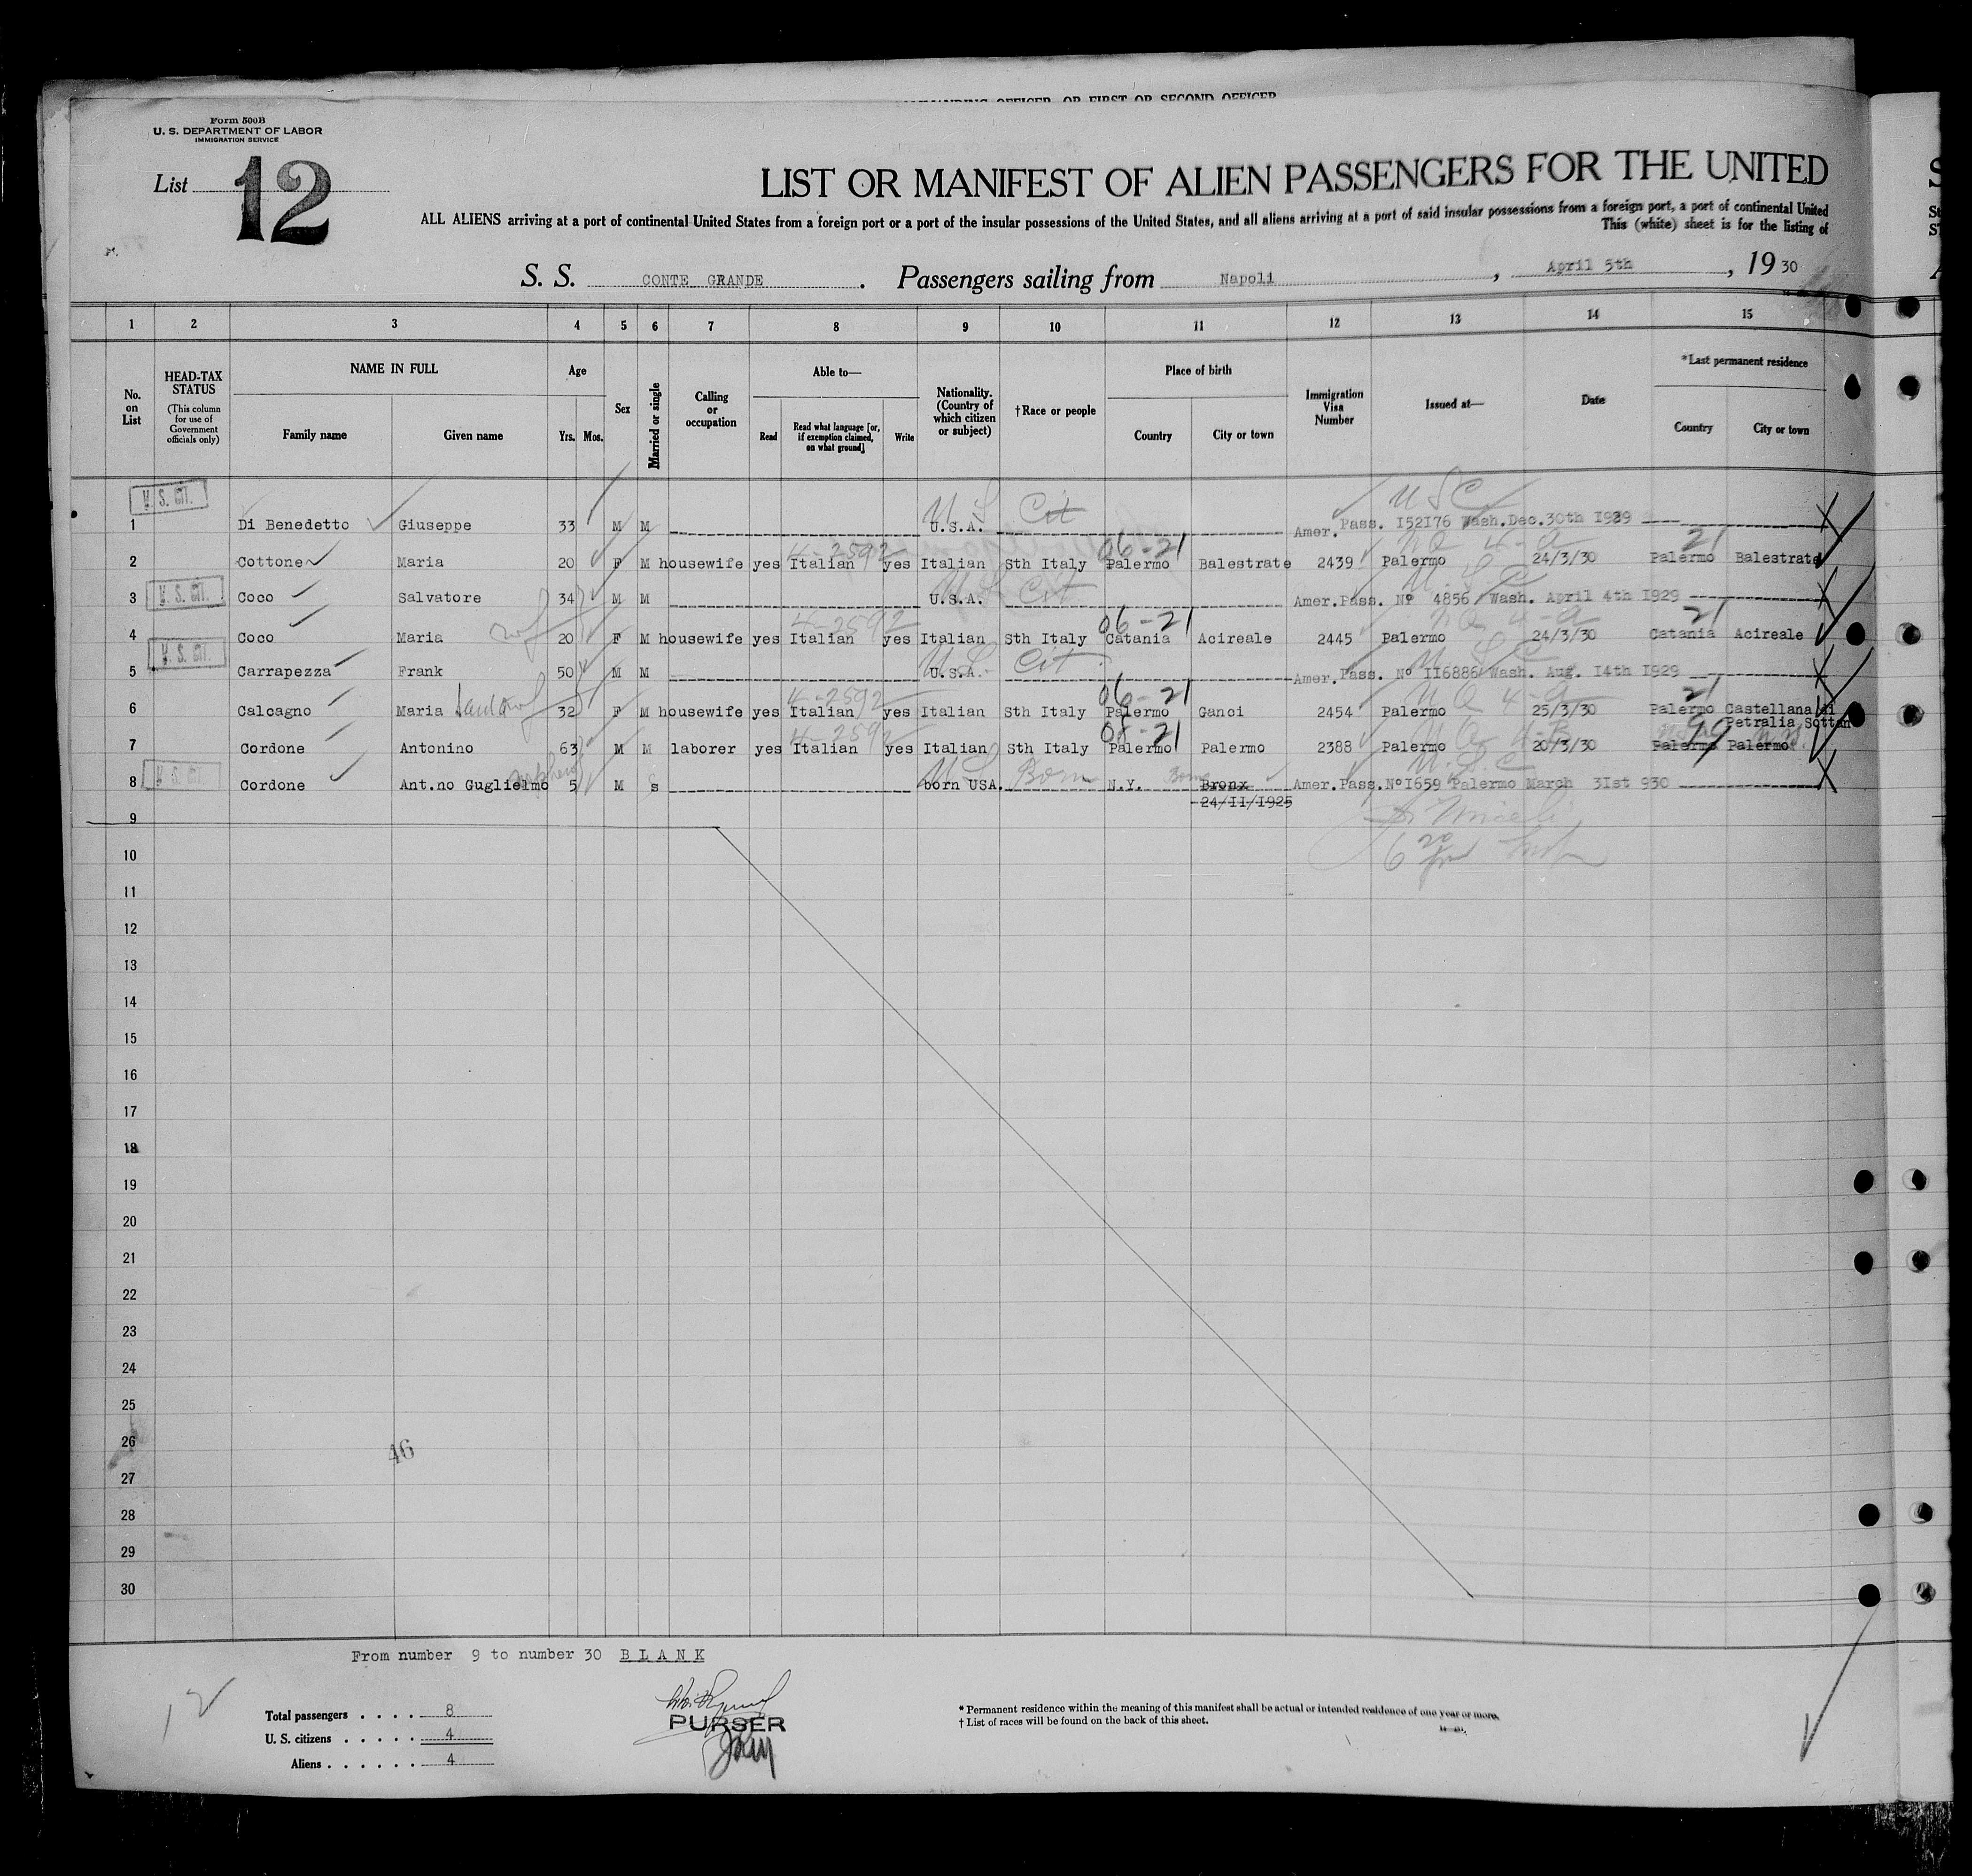 Form 500B
U. S. DEPARTMENT OF LABOR
IMMIGRATION SERVICE
List 12
LIST OR MANIFEST OF ALIEN PASSENGERS FOR THE UNITED
ALL ALIENS arriving at a port of continental United States from a foreign port or a port of the insular possessions of the United States, and all aliens arriving at a port of said insular possessions from a foreign port, a port of continental United
This (white) sheet is for the listing of
S. S. CONTE GRANDE . Passengers sailing from Napoli , April 5th , 19 30
1 2 3 4 5 6 7 8 9 10 11 12 13 14 15
No. on List
HEAD-TAX STATUS (This column for use of Government officials only)
NAME IN FULL
Family name Given name
Age
Yrs. Mos.
Sex
Married or single
Calling or occupation
Able to—
Read
Read what language [or, if exemption claimed, on what ground]
Write
Nationality. (Country of which citizen or subject)
†Race or people
Place of birth
Country City or town
Immigration Visa Number
Issued at—
Date
*Last permanent residence
Country City or town
U. S. CIT. U S Cit U S C
1 Di Benedetto Giuseppe 33 M M U.S.A. Amer. Pass. I52I76 Wash. Dec. 30th I929
4-2592 06-21 N Q 4-a 21
2 Cottone Maria 20 F M housewife yes Italian yes Italian Sth Italy Palermo Balestrate 2439 Palermo 24/3/30 Palermo Balestrate
U. S. CIT. U S Cit U. S. C
3 Coco Salvatore 34 M M U.S.A. Amer. Pass. Nº 4856 Wash. April 4th I929
4-2592 06-21 N Q 4-a 21
4 Coco Maria 20 F M housewife yes Italian yes Italian Sth Italy Catania Acireale 2445 Palermo 24/3/30 Catania Acireale
U. S. CIT. U. S. Cit U S C
5 Carrapezza Frank 50 M M U.S.A. Amer. Pass. Nº II6886 Wash. Aug. I4th I929
4-2592 06-21 N Q 4-a 21
6 Calcagno Maria 32 F M housewife yes Italian yes Italian Sth Italy Palermo Ganci 2454 Palermo 25/3/30 Palermo Castellana di
Petralia Sottan
4-2592 08-21 99 N.Y.
7 Cordone Antonino 63 M M laborer yes Italian yes Italian Sth Italy Palermo Palermo 2388 Palermo 20/3/30 Palermo Palermo
U. S. CIT. U S Born Born U. S. C
8 Cordone Ant.no Guglielmo 5 M s born USA. N.Y. Bronx Amer. Pass. NºI659 Palermo March 3Ist 930
24/II/I925
9
10
11
12
13
14
15
16
17
18
19
20
21
22
23
24
25
26
46
27
28
29
30
From number 9 to number 30 BLANK
12
Total passengers . . . . 8
U. S. citizens . . . . . 4
Aliens . . . . . . 4
PURSER
* Permanent residence within the meaning of this manifest shall be actual or intended residence of one year or more.
† List of races will be found on the back of this sheet.